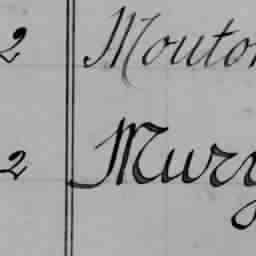 2 Mouton
2 Mury